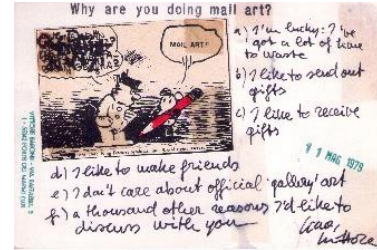 Why are you doing mail art?
a) I'm lucky: I've
got a lot of time
to waste
MAIL ART!
b) I like to send out
gifts
c) I like to receive
gifts
11 MAG 1979
d) I like to make friends
e) I don't care about official 'gallery' art
f) a thousand other reasons I'd like to
discuss with you
Ciao,
Vittore
VITTORE BARONI